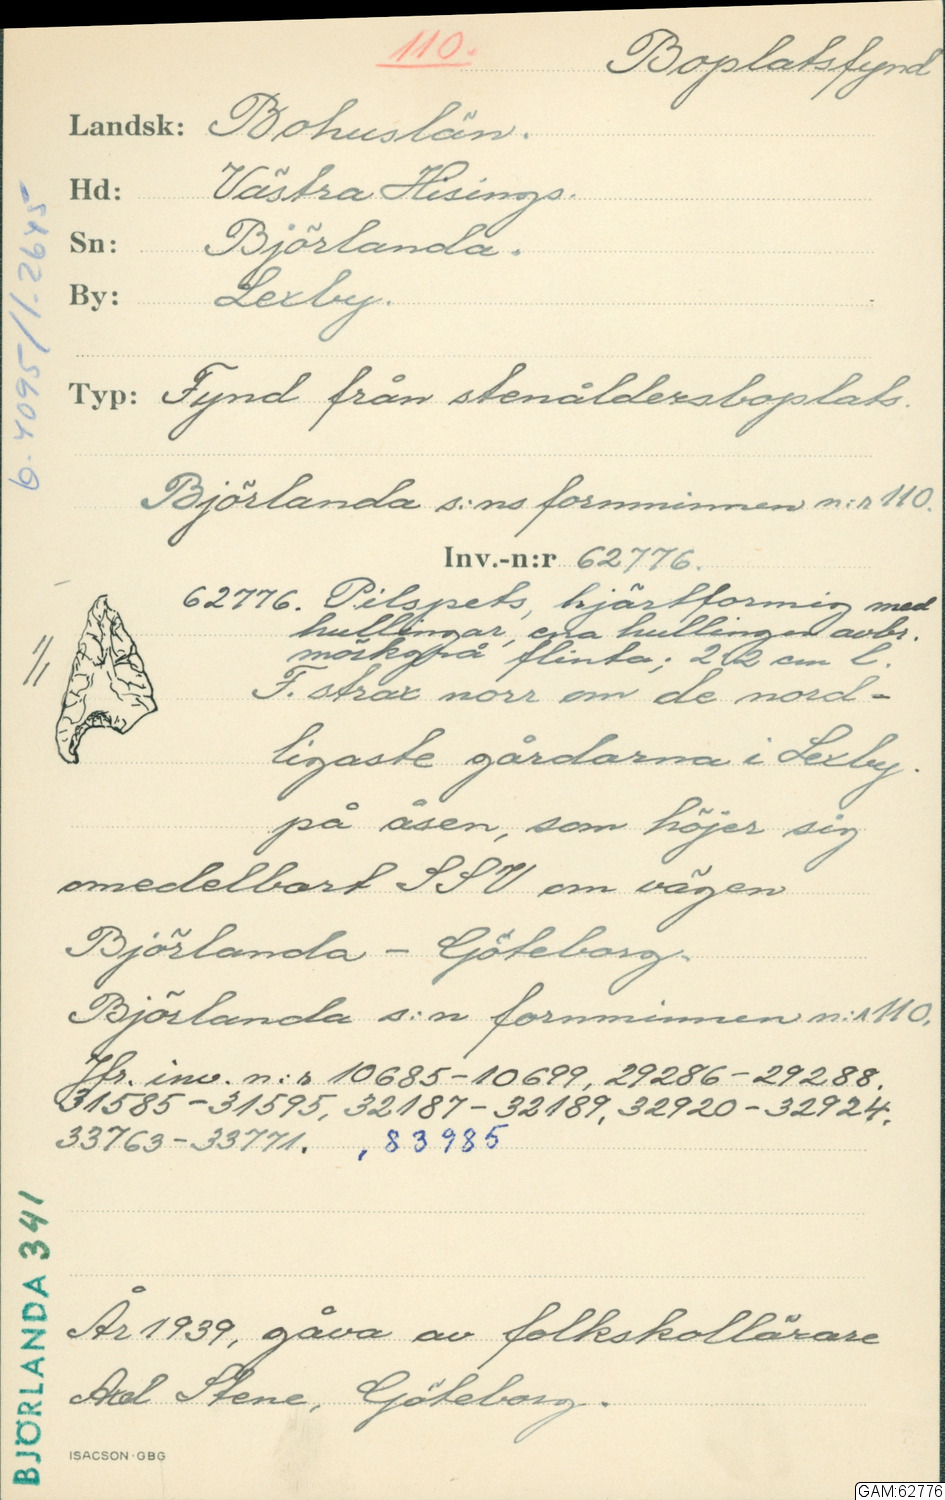 110.
Boplatsfynd
Landsk: Bohuslän.
Hd: Västra Hisings.
Sn: Björlanda.
By: Lexby.
Typ: Fynd från stenåldersboplats.
Björlanda s:ns fornminnen n:r 110.
Inv.-n:r 62776.
62776. Pilspets, hjärtformig med
hullingar, ena hullingen avbr.
mörkgrå flinta; 2,2 cm l.
1/1
F. strax norr om de nord-
ligaste gårdarna i Lexby.
på åsen, som höjer sig
omedelbart SSV om vägen
Björlanda - Göteborg.
Björlanda s:n fornminnen n:r 110.
Jfr. inv. n:r 10685-10699, 29286-29288.
31585-31595, 32187-32189, 32920-32924,
33763-33771. , 83985
År 1939, gåva av folkskollärare
Axel Stene, Göteborg.
ISACSON-GBG
BJÖRLANDA 341
4095/1-2645
GAM:62776